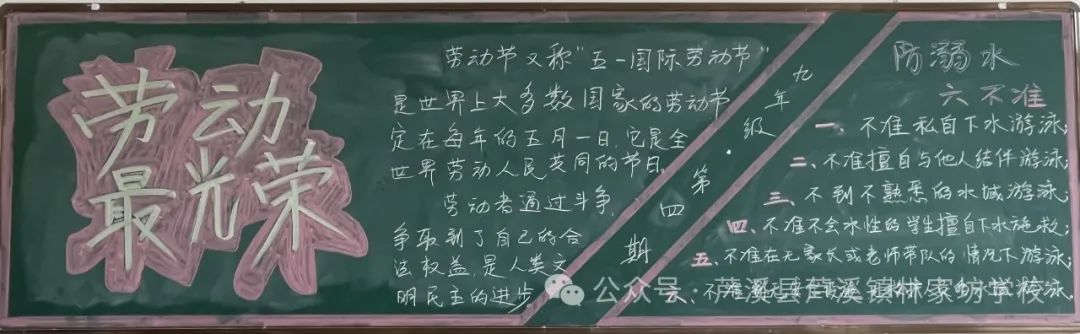 劳动
最光荣
劳动节又称"五一国际劳动节"
是世界上大多数国家的劳动节
定在每年的五月一日,它是全
世界劳动人民共同的节日。
劳动者通过斗争,
争取到了自己的合
法权益,是人类文
明民主的进步
九年级·第四期
防溺水
六不准
一、不准私自下水游泳;
二、不准擅自与他人结伴游泳;
三、不到不熟悉的水域游泳;
四、不准不会水性的学生擅自下水施救;
五、不准在无家长或老师带队的情况下游泳;
六、不准
游泳。
公众号·芦溪县芦溪镇林家坊学校